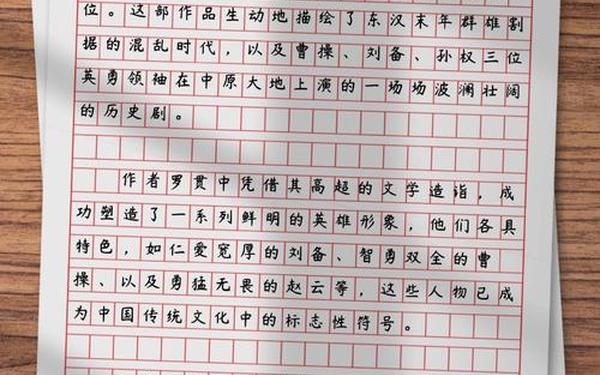 位。这部作品生动地描绘了东汉末年群雄割
据的混乱时代，以及曹操、刘备、孙权三位
英勇领袖在中原大地上演的一场场波澜壮阔
的历史剧。
作者罗贯中凭借其高超的文学造诣，成
功塑造了一系列鲜明的英雄形象，他们各具
特色，如仁爱宽厚的刘备、智勇双全的曹
操、以及勇猛无畏的赵云等，这些人物已成
为中国传统文化中的标志性符号。